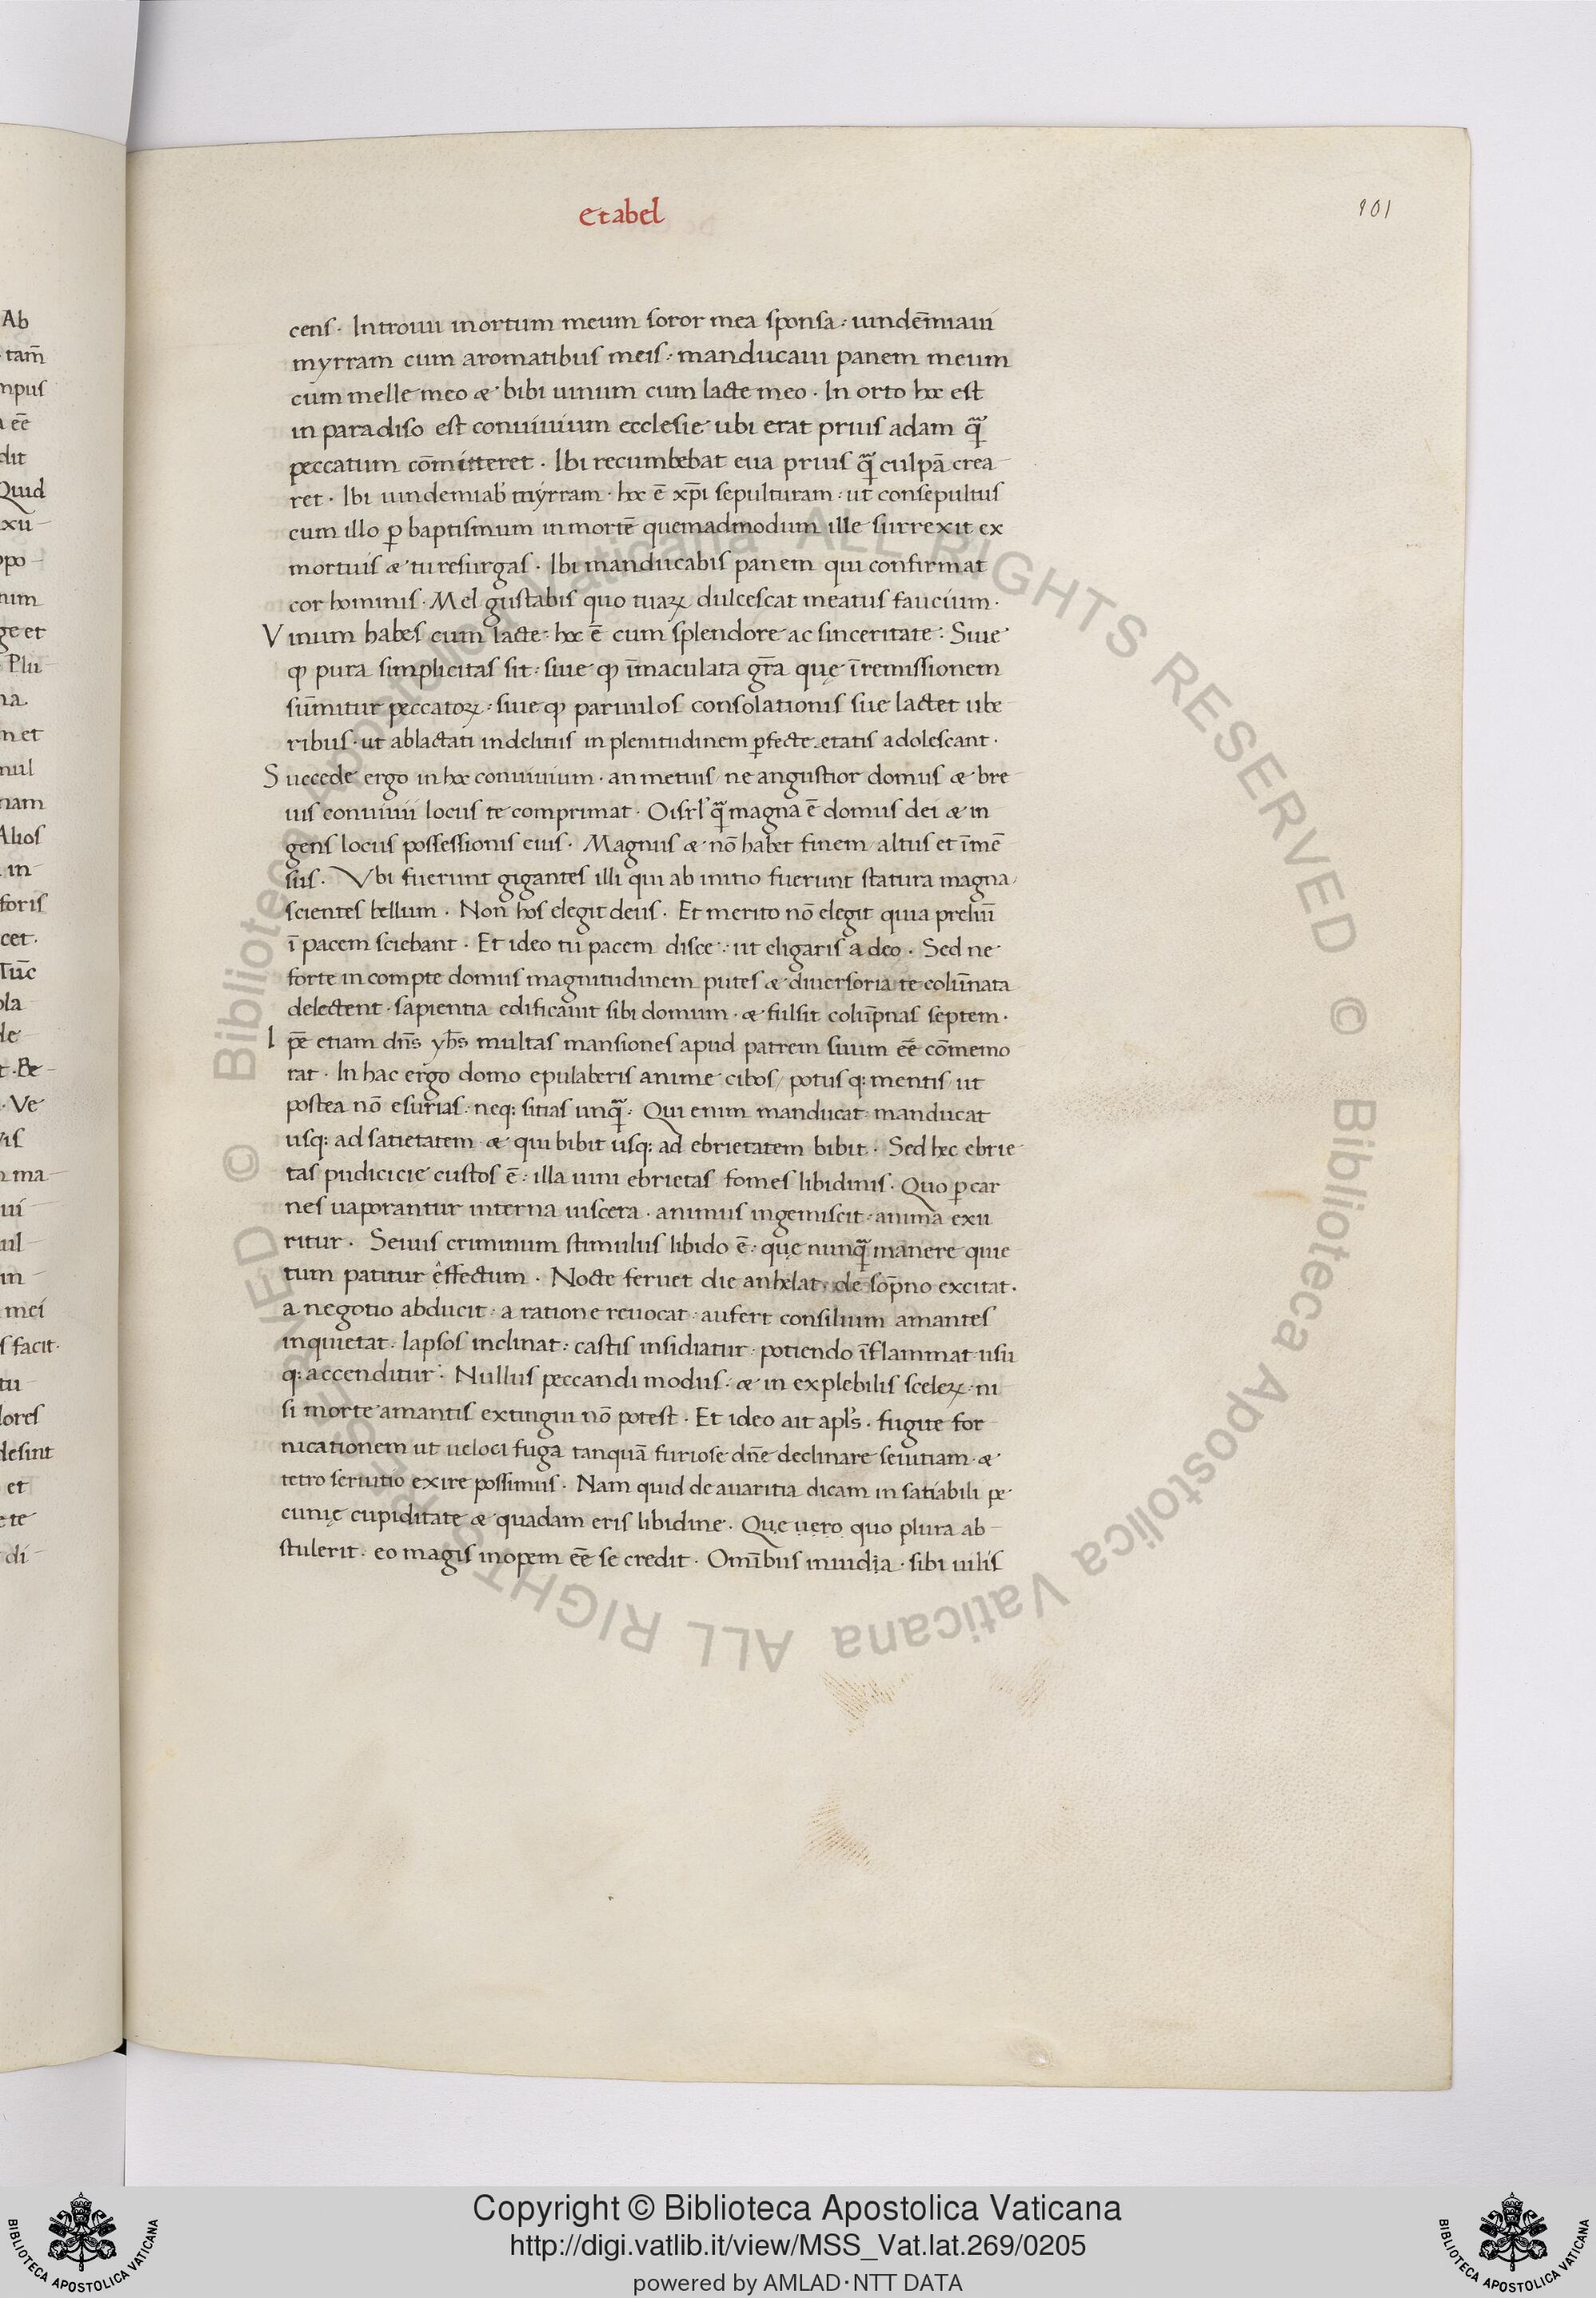 et abel
101
cens. Introiui in ortum meum soror mea sponsa: uindēmiaui
myrram cum aromatibus meis: manducaui panem meum
cum melle meo & bibi uinum cum lacte meo. In orto hoc est
in paradiso est conuiuium ecclesie ubi erat prius adam q̄
peccatum cōmitteret. Ibi recumbebat eua prius q̄ culpā crea
ret. Ibi uindemiab myrram. hoc ē xp̄i sepulturam: ut consepultus
cum illo ꝑ baptismum in mortē quemadmodum ille surrexit ex
mortuis & tu resurgas. Ibi manducabis panem qui confirmat
cor hominis. Mel gustabis quo tuaꝝ dulcescat meatus faucium.
Vinum habes cum lacte: hoc ē cum splendore ac sinceritate: Siue
ꝙ pura simplicitas sit: siue ꝙ īmaculata gr̄a quę ī remissionem
sūmitur peccatoꝝ: siue ꝙ paruulos consolationis sue lactet ube
ribus. ut ablactati in delitiis in plenitudinem ꝑfecte etatis adolescant.
Succede ergo in hoc conuiuium. an metuis ne angustior domus & bre
uis conuiuii locus te comprimat. O isrl' q̄ magna ē domus dei & in
gens locus possessionis eius. Magnus & nō habet finem / altus et īmē
sus. Vbi fuerunt gigantes illi qui ab initio fuerunt statura magna /
scientes bellum. Non hos elegit deus. Et merito nō elegit quia preliū
ī pacem sciebant. Et ideo tu pacem disce: ut eligaris a deo. Sed ne
forte in compte domus magnitudinem putes & diuersoria te colūnata
delectent. sapientia edificauit sibi domum. & fulsit colūpnas septem.
Ipē etiam dn̄s yhs̄ multas mansiones apud patrem suum eē cōmemo
rat. In hac ergo domo epulaberis anime cibos / potus q: mentis / ut
postea nō esurias: neq: sitias unq̄. Qui enim manducat manducat
usq: ad satietatem & qui bibit usq: ad ebrietatem bibit. Sed hec ebrie
tas pudicicie custos ē: illa uini ebrietas fomes libidinis. Quo ꝑ car
nes uaporantur interna uiscera. animus ingemiscit: anima exu
ritur. Seuus criminum stimulus libido ē: quę nunq̄ manere quie
tum patitur effectum. Nocte feruet die anhelat. de sōpno excitat.
a negotio abducit: a ratione reuocat: aufert consilium amantes
inquietat. lapsos inclinat: castis insidiatur. potiendo īflammat usu
q: accenditur. Nullus peccandi modus: & in explebilis sceleꝝ. ni
si morte amantis extingui nō potest. Et ideo ait apl's. fugite for
nicationem ut ueloci fuga tanquā furiose dn̄e declinare seuitiam &
tetro seruitio exire possimus. Nam quid de auaritia dicam in satiabili pe
cunię cupiditate & quadam eris libidine. Quę uero quo plura ab
stulerit. eo magis inopem eē se credit. Omībus inuidia. sibi uilis
Ab
tam̄
mpus
eē
dit
Quid
xu
po
num
ge et
Plu
na
n et
mul
nam
Alios
in
foris
cet.
Tūc
ola
de
Be
Ve
vis
ma
ui
ul
in
mei
s facit.
tu
lores
desint
et
te
di
© Biblioteca Apostolica Vaticana ALL RIGHTS RESERVED © Biblioteca Apostolica Vaticana ALL RIGHTS RESERVED
Copyright © Biblioteca Apostolica Vaticana
http://digi.vatlib.it/view/MSS_Vat.lat.269/0205
powered by AMLAD·NTT DATA
BIBLIOTECA APOSTOLICA VATICANA
BIBLIOTECA APOSTOLICA VATICANA